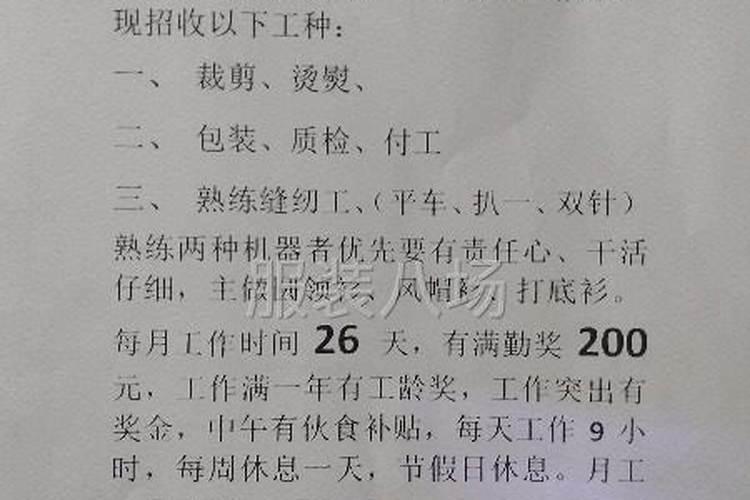 现招收以下工种：
一、 裁剪、烫熨、
二、 包装、质检、付工
三、 熟练缝纫工、（平车、扒一、双针）
熟练两种机器者优先要有责任心、干活
仔细，主做圆领衫、风帽衫、打底衫。
服装八场
每月工作时间 26 天，有满勤奖 200
元，工作满一年有工龄奖，工作突出有
奖金，中午有伙食补贴，每天工作 9 小
时，每周休息一天，节假日休息。月工